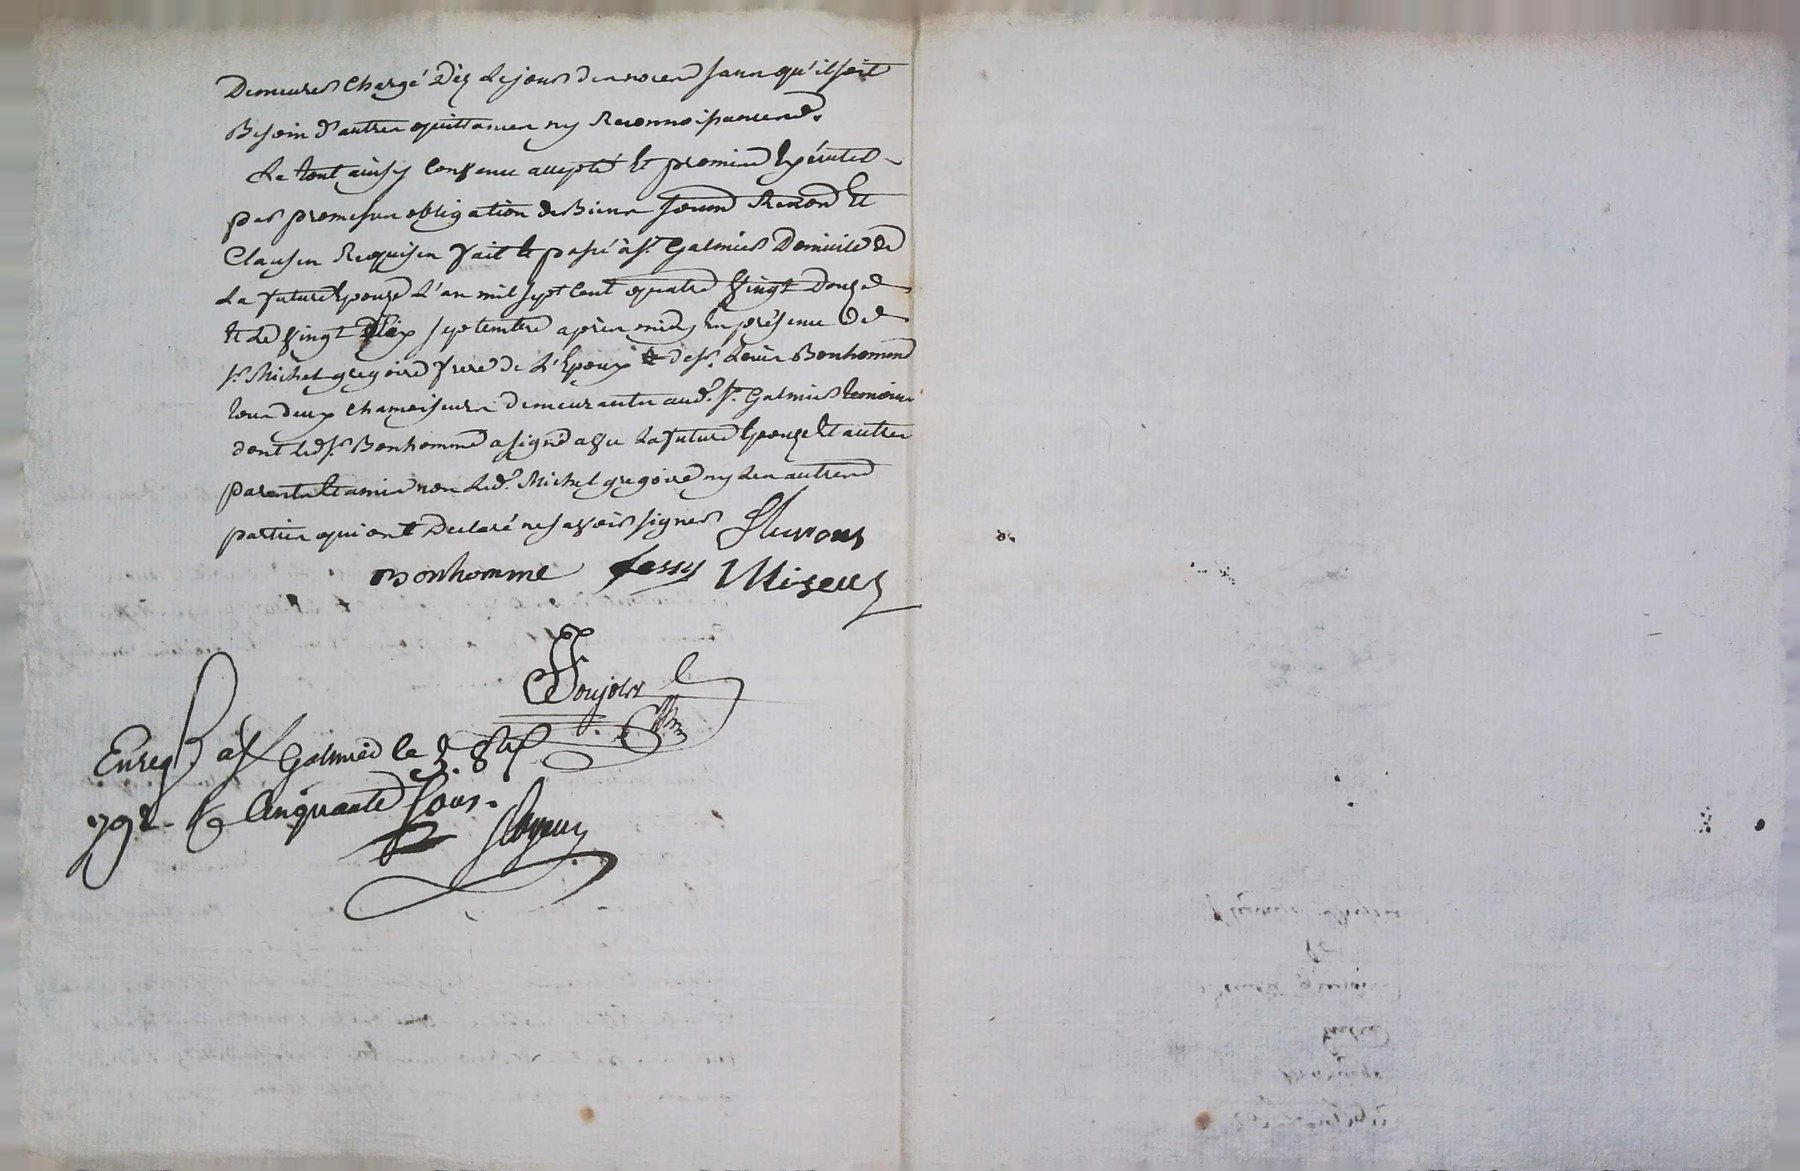 Demeurer chargé dès le jour des noces sans qu'il soit
Besoin d'autres quittances ny Reconnoissances.
Le tout ainsy convenu accepté et promis Exécuter
par promesses obligation de Biens soumis Renon Et
Clauses Requises fait et passé à St. Galmier Domicile de
La future Epouse L'an mil sept Cent quatre vingt Douze
Et Le vingt Six septembre après midy En présence de
sr. Michel gregoire frere de L'Epoux & de sr. Louis Bonhomme
tous deux chamoiseurs demeurants aud. St. Galmier temoins
dont Led. sr. Bonhomme a signé avec La future Epouse Et autres
parents Et amis non Led. Michel gregoire ny Les autres
parties qui ont Declaré ne savoir signer
Bonhomme fessy
Enreg à St Galmier le 3. 8bre
1792. R cinquante sous.